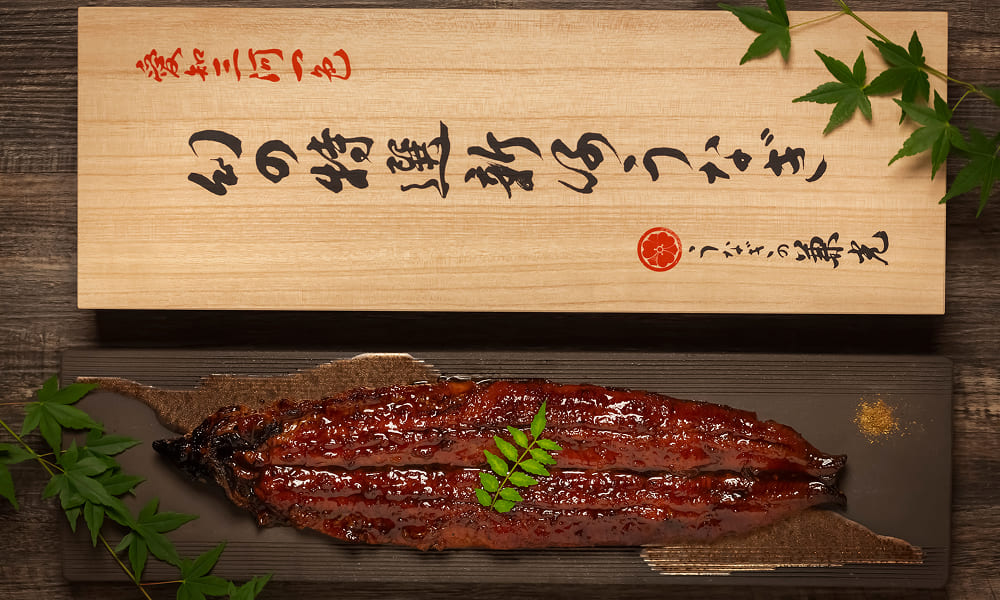 愛知三河一色
幻の特選新仔うなぎ
うなぎの兼光